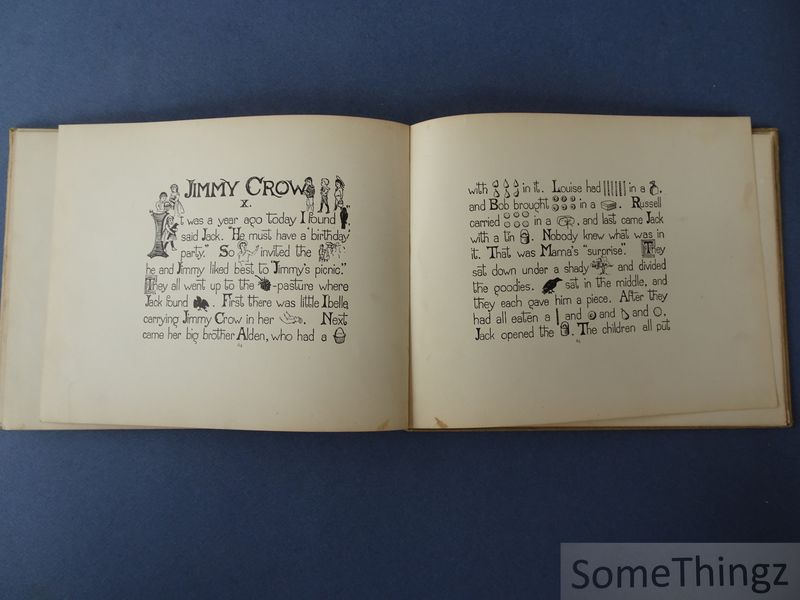 JIMMY CROW
X.
It was a year ago today I found
said Jack. "He must have a 'birthday'
party." So invited the
he and Jimmy liked best to "Jimmy's picnic."
They all went up to the -pasture where
Jack found . First there was little Ibelle
carrying Jimmy Crow in her . Next
came her big brother Alden, who had a
with in it. Louise had in a ,
and Bob brought in a . Russell
carried in a , and last came Jack
with a tin . Nobody knew what was in
it. That was Mama's "surprise". They
sat down under a shady and divided
the goodies. sat in the middle, and
they each gave him a piece. After they
had all eaten a and and and ,
Jack opened the . The children all put
SomeThingz